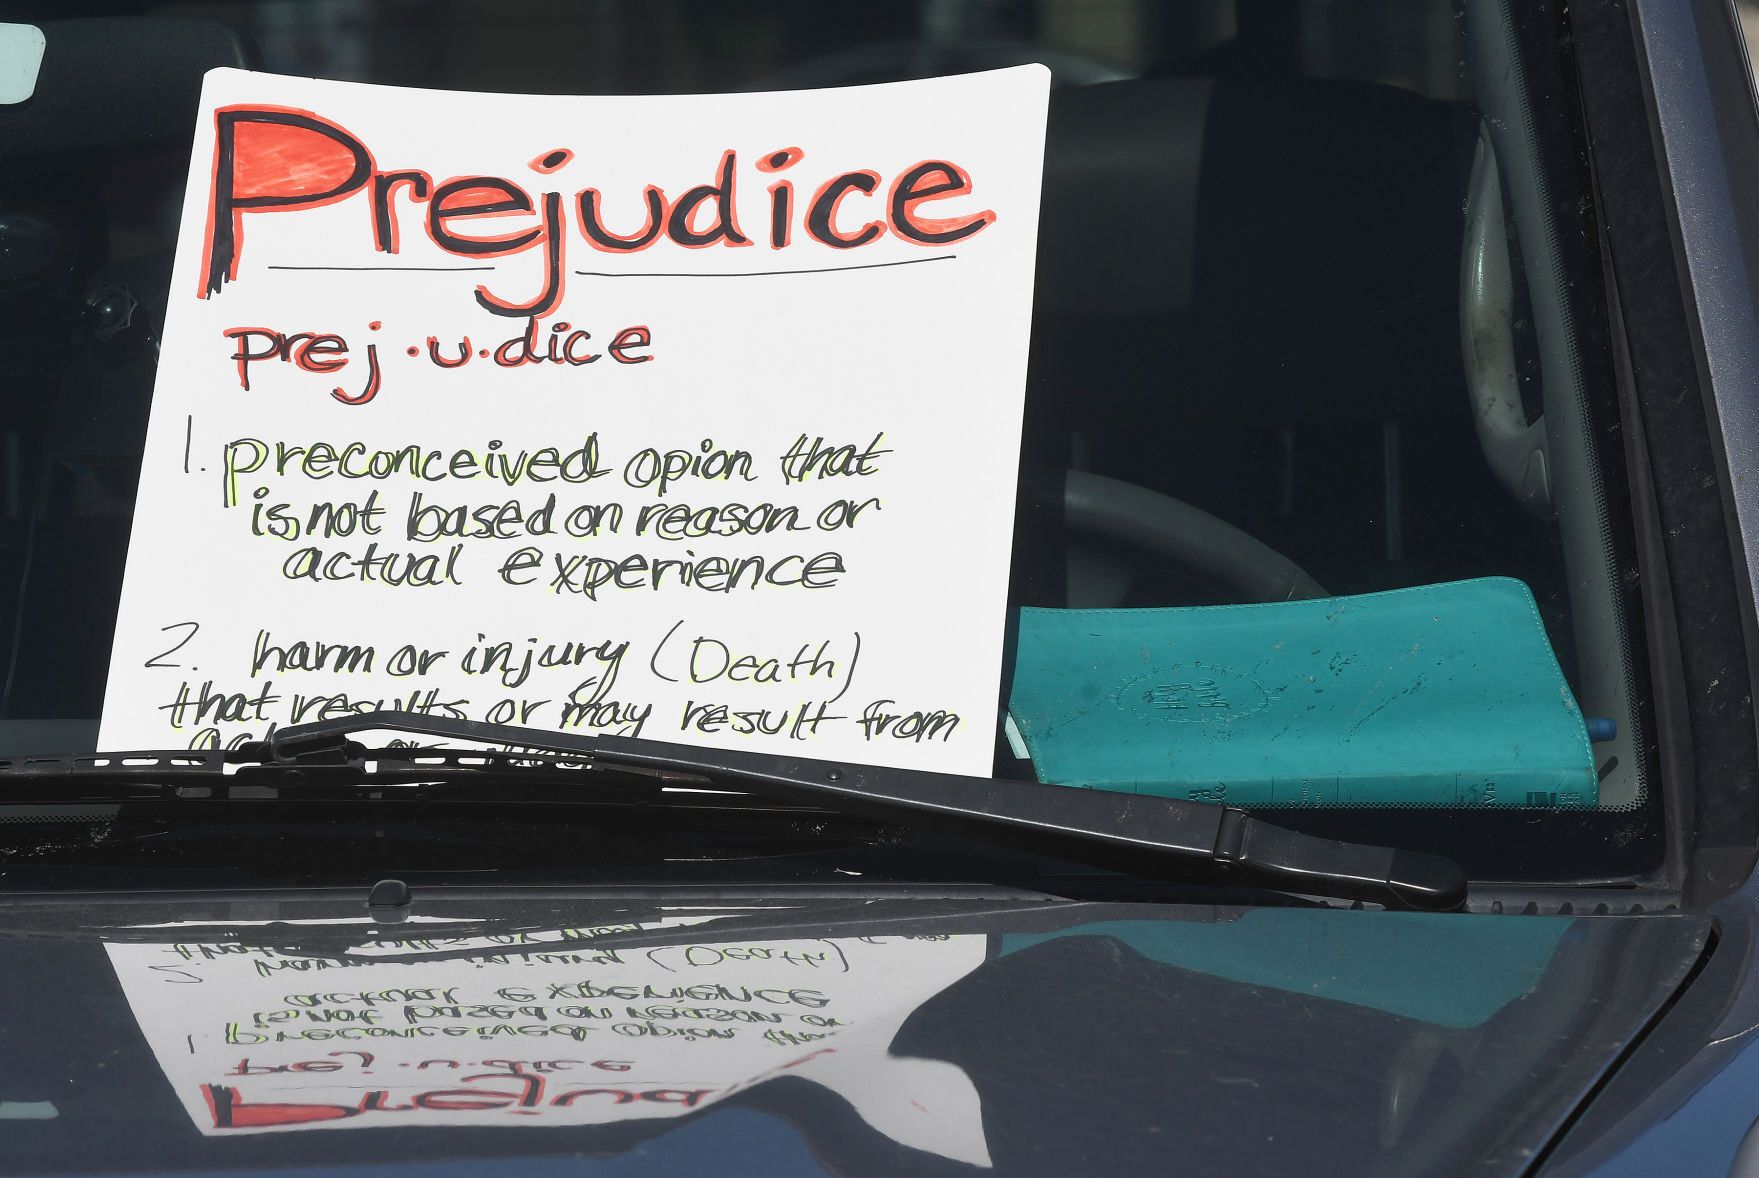 Prejudice
prej·u·dice
1. preconceived opion that
is not based on reason or
actual experience
2. harm or injury (Death)
that results or may result from